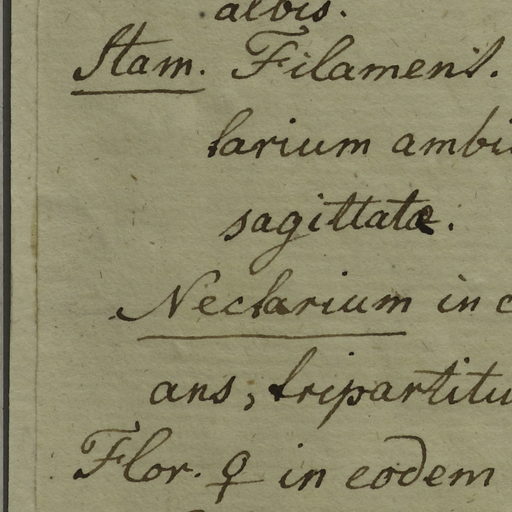 albis.
Stam. Filament.
larium ambi
sagittatæ.
Nectarium in c
ans, tripartitu
Flor. ♀ in eodem